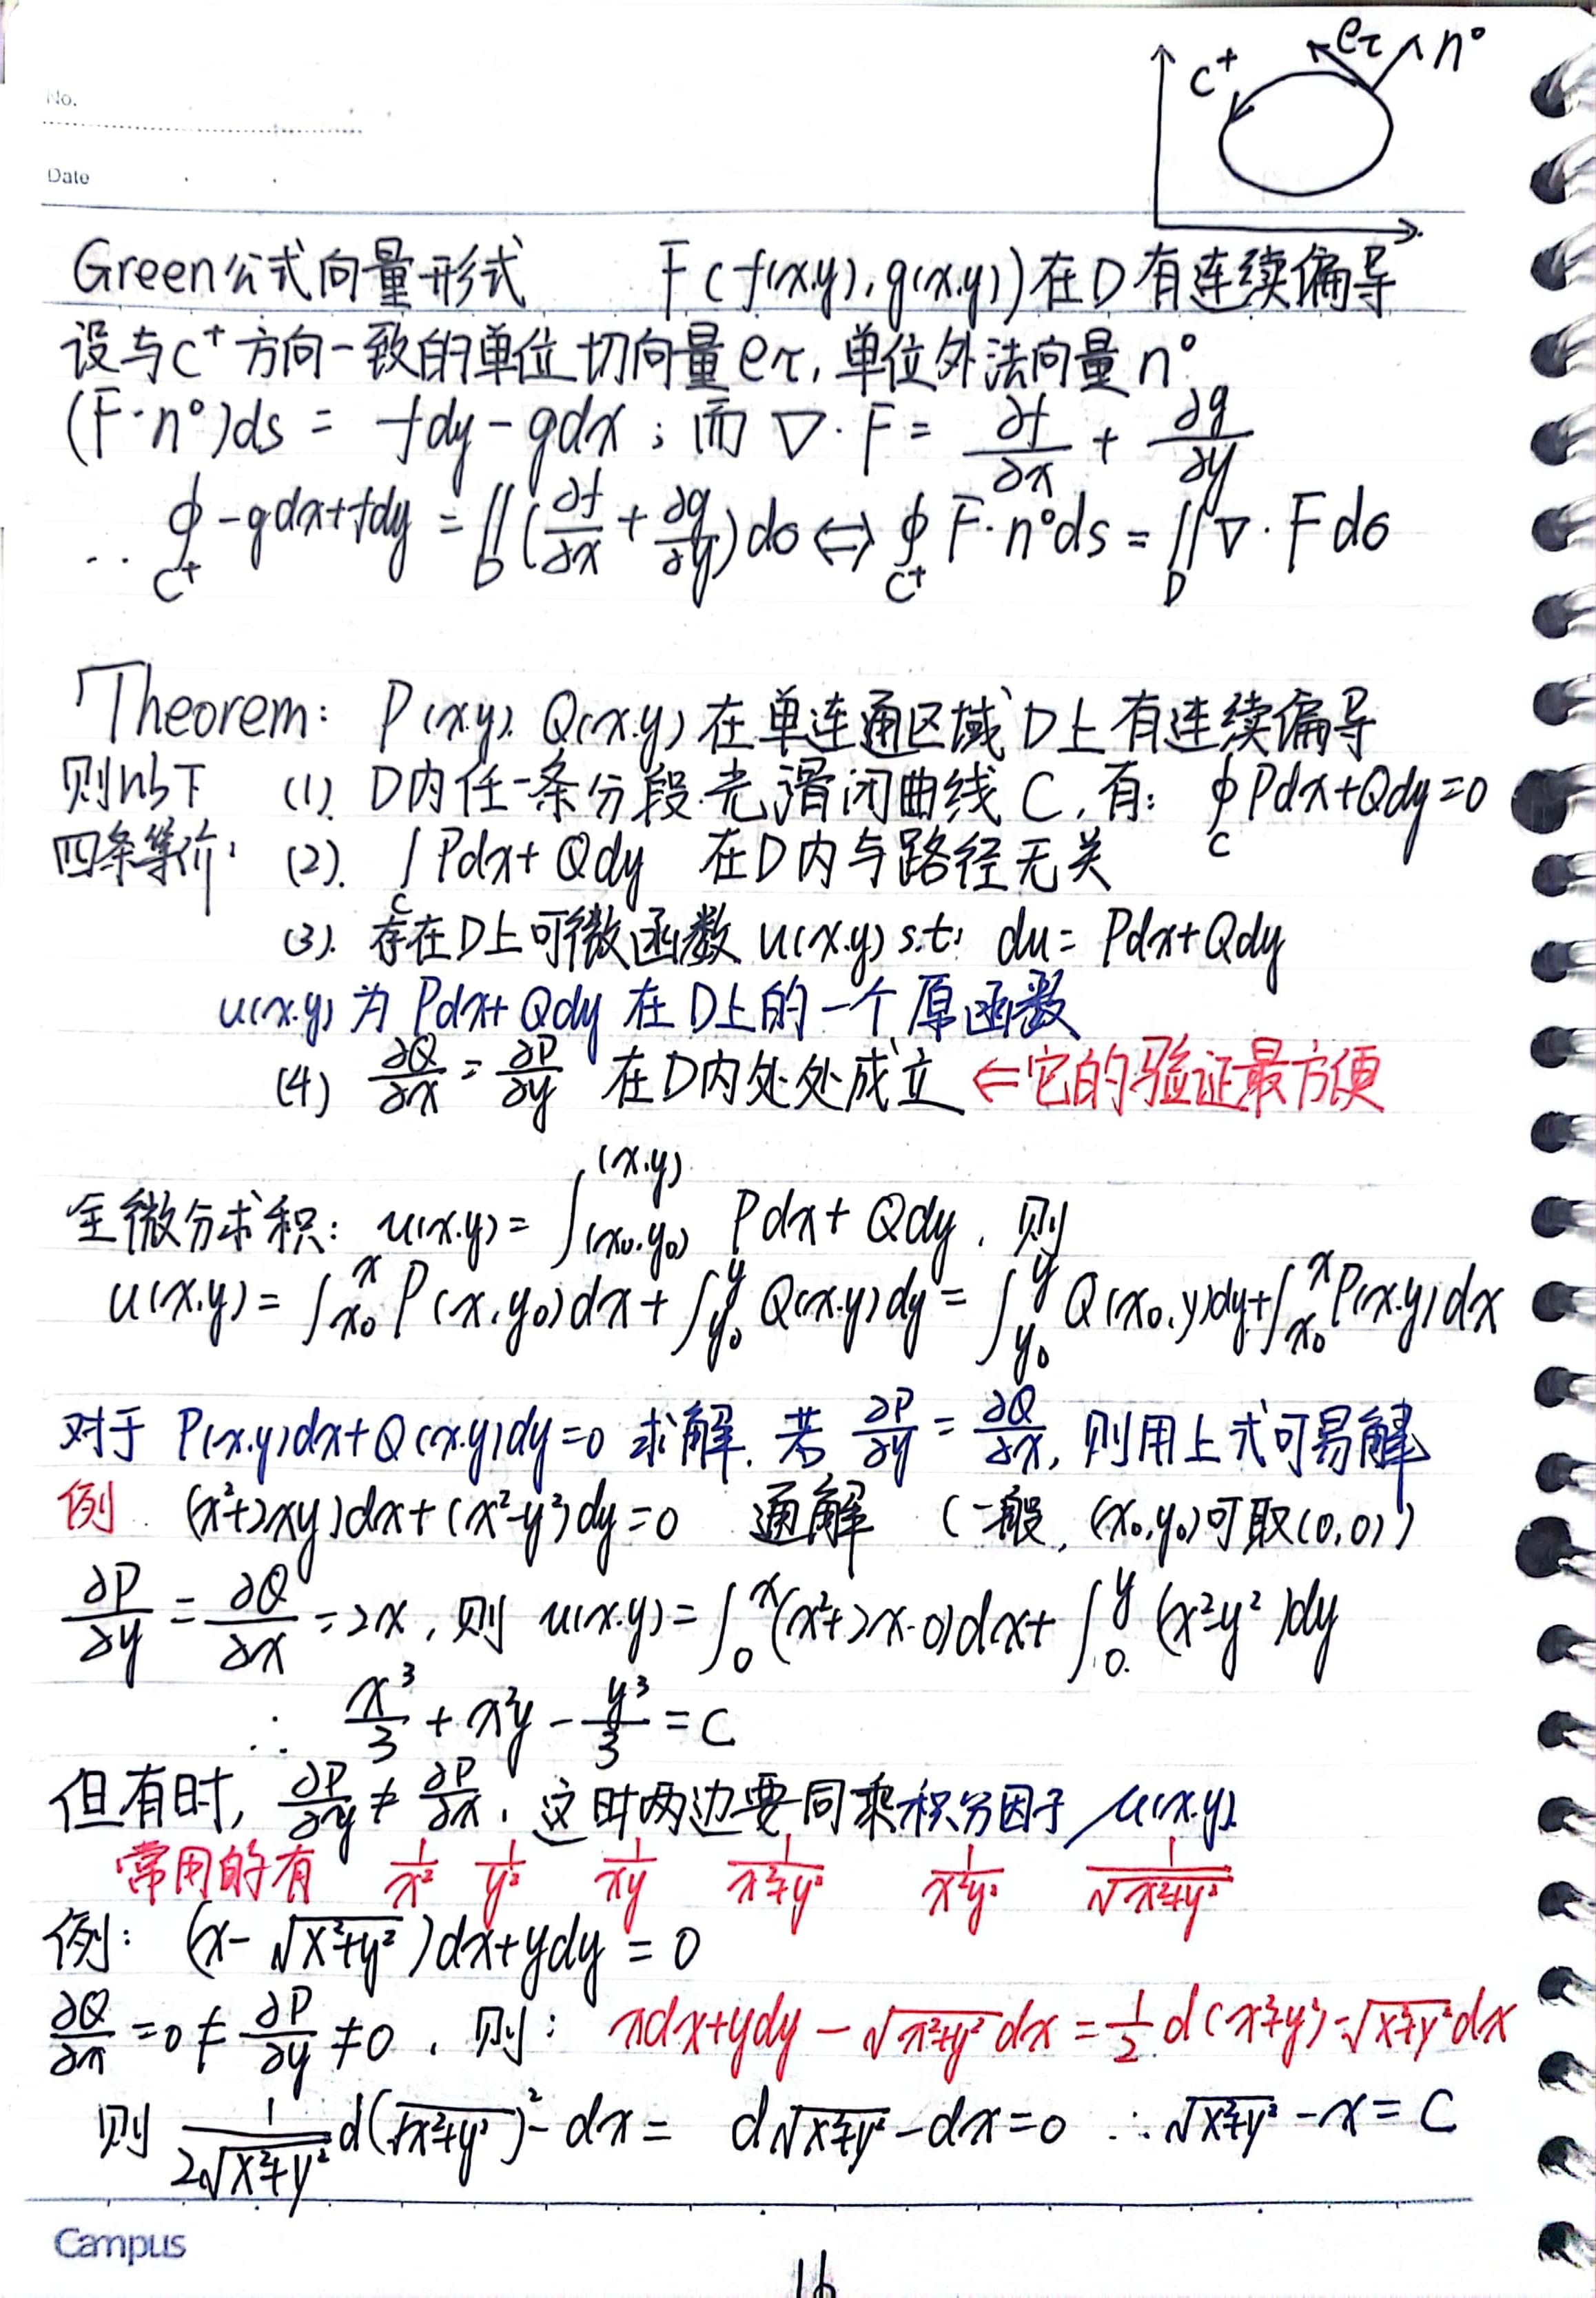 No.
Date
C⁺ eτ n°
Green公式向量形式 F(f(x,y),g(x,y))在D有连续偏导
设与C⁺方向一致的单位切向量eτ,单位外法向量n°
(F·n°)ds = fdy-gdx;而 ∇·F = ∂f/∂x + ∂g/∂y
∴ ∮_{C⁺} -gdx+fdy = ∬_D (∂f/∂x + ∂g/∂y)dσ ⇔ ∮_{C⁺} F·n°ds = ∬_D ∇·Fdσ
Theorem: P(x,y),Q(x,y)在单连通区域D上有连续偏导
则以下 (1). D内任一条分段光滑闭曲线C,有: ∮_C Pdx+Qdy=0
四条等价: (2). ∫_C Pdx+Qdy 在D内与路径无关
(3). 存在D上可微函数u(x,y) s.t: du=Pdx+Qdy
u(x,y)为Pdx+Qdy在D上的一个原函数
(4) ∂Q/∂x = ∂P/∂y 在D内处处成立 ⇐它的验证最方便
全微分求积: u(x,y)=∫_{(x₀,y₀)}^{(x,y)} Pdx+Qdy,则
u(x,y)=∫_{x₀}^{x} P(x,y₀)dx+∫_{y₀}^{y} Q(x,y)dy=∫_{y₀}^{y} Q(x₀,y)dy+∫_{x₀}^{x} P(x,y)dx
对于P(x,y)dx+Q(x,y)dy=0求解.若 ∂P/∂y = ∂Q/∂x,则用上式可易解
例 (x²+2xy)dx+(x²-y²)dy=0 通解 (一般,(x₀,y₀)可取(0,0))
∂P/∂y = ∂Q/∂x =2x,则 u(x,y)=∫_0^x (x²+2x·0)dx+∫_0^y (x²-y²)dy
∴ x³/3 + x²y - y³/3 = C
但有时, ∂P/∂y ≠ ∂P/∂x,这时两边要同乘积分因子μ(x,y)
常用的有 1/x² 1/y² 1/xy 1/(x²+y²) 1/(x²y²) 1/√(x²+y²)
例: (x-√(x²+y²))dx+ydy=0
∂Q/∂x =0≠ ∂P/∂y ≠0,则: xdx+ydy-√(x²+y²)dx=1/2 d(x²+y²)-√(x²+y²)dx
则 1/(2√(x²+y²)) d(√(x²+y²))²-dx= d√(x²+y²)-dx=0 ∴√(x²+y²)-x=C
Campus
16